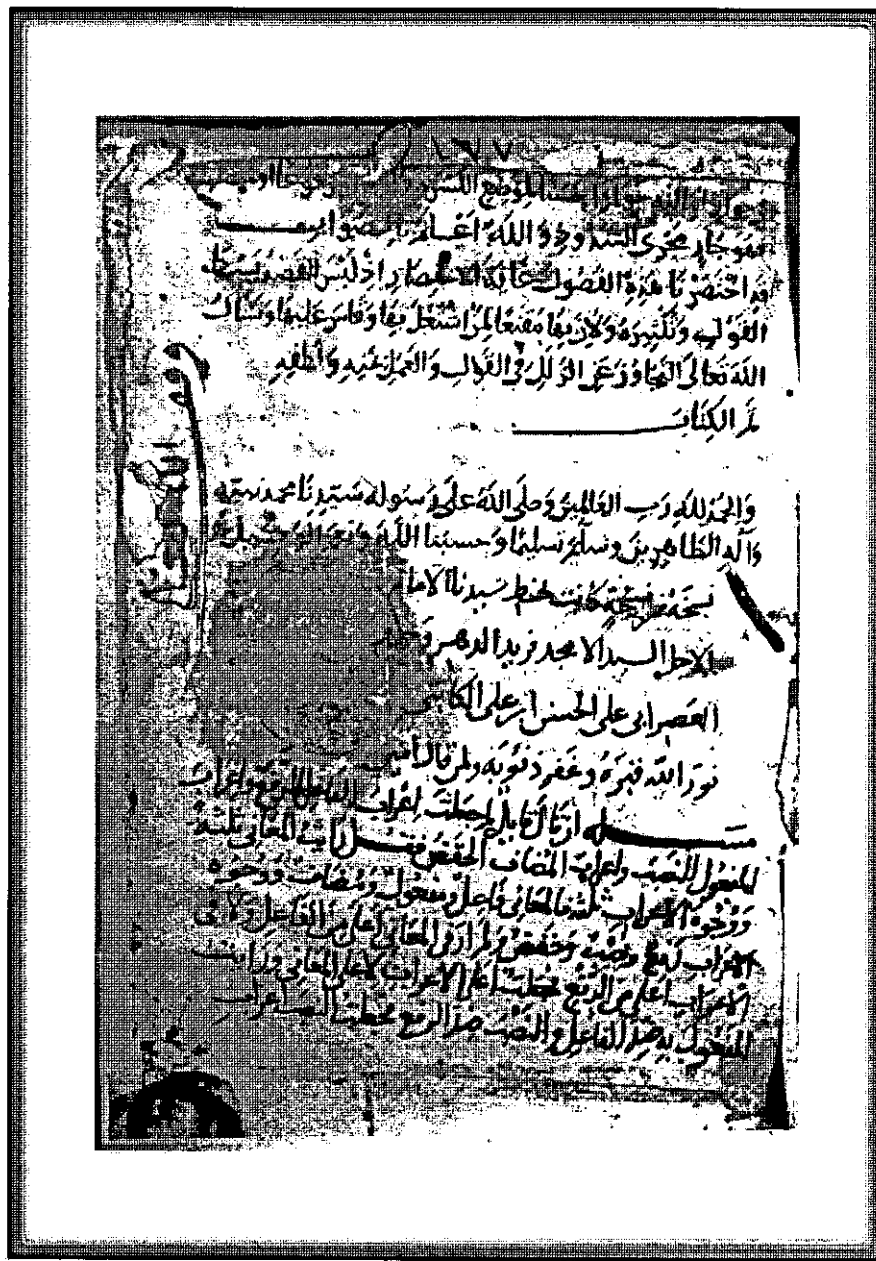 ١٦٧
فهو جار مجرى
قد اختصرنا هذه الفصول غاية الاختصار اذ ليس القصد
القول وتكثيره ولان فيها مقنعا لمن اشتغل بها وقاس عليها ونسال
الله تعالى التجاوز عن الزلل في القول والعمل بمنه ولطفه
تم الكتاب
والحمد لله رب العالمين وصلى الله على رسوله سيدنا محمد نبيه
وآله الطاهرين وسلم تسليما وحسبنا الله ونعم الوكيل
نسخة من نسخة كانت بخط سيدنا الامام
الاجل السيد الامجد فريد الدهر
العصر ابي علي الحسن ابن علي الكاتب
نور الله قبره وغفر ذنوبه ولمن قال آمين
مسئله ان قال قايل لم جعلت اعراب الفاعل الرفع واعراب
المفعول النصب واعراب المضاف الخفض فقل رايت المعاني ثلثة
ووجوه الاعراب ثلثة فالمعاني فاعل ومفعول ومضاف ووجوه
الاعراب رفع ونصب وخفض ولم ار في المعاني اعلى من الفاعل ولا في
الاعراب اعلى من الرفع فجعلت اعلى الاعراب لاعلى المعاني ورايت
المفعول به ضد الفاعل والنصب ضد الرفع فجعلت النصب اعراب
وقف لله